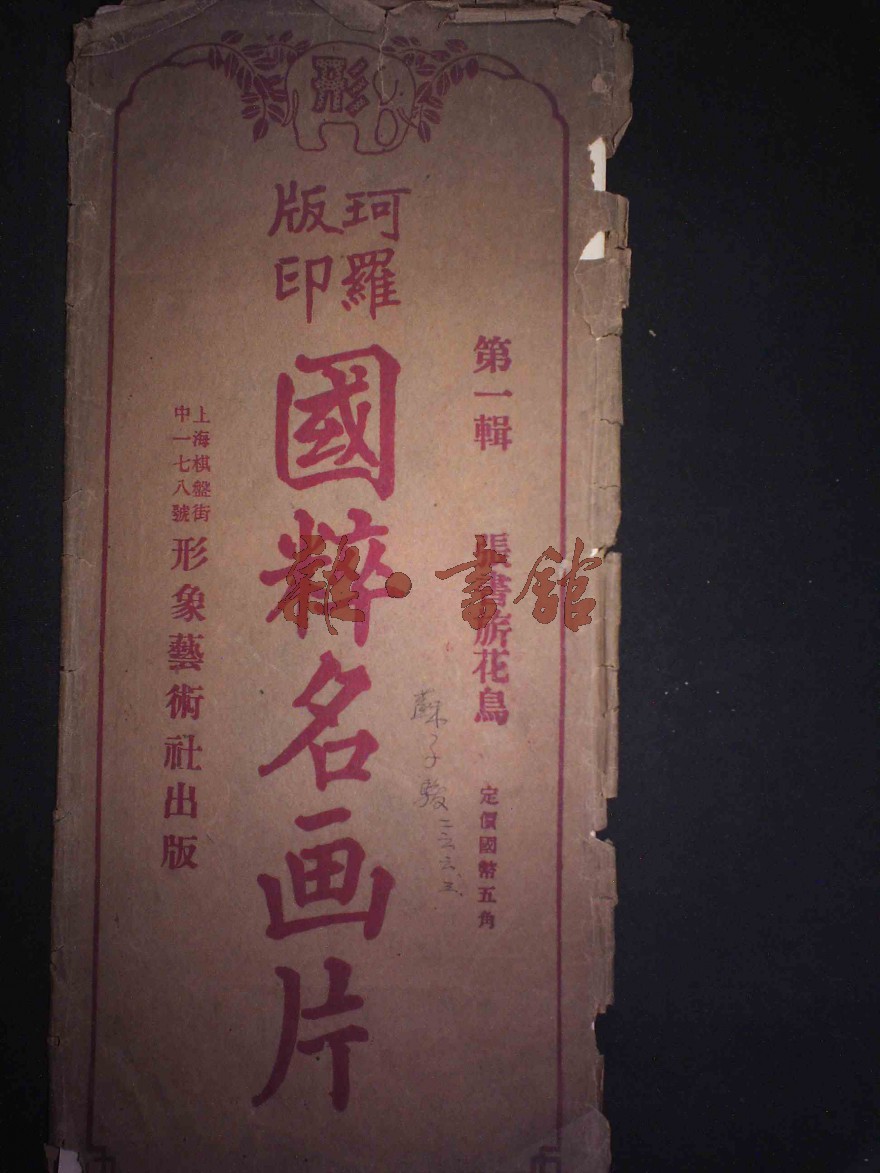 形
珂羅
版印
國粹名画片
第一輯
張書旂花鳥
定價國幣五角
上海棋盤街
中一七八號
形象藝術社出版
雜·書館
蘇子